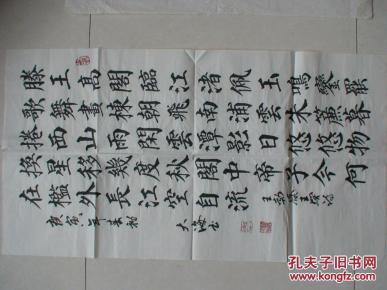 滕王高閣臨江渚佩玉鳴鑾罷
歌舞畫棟朝飛南浦雲朱簾暮
捲西山雨閒雲潭影日悠悠物
換星移幾度秋閣中帝子今何
在檻外長江空自流
庚寅年春初
大海書